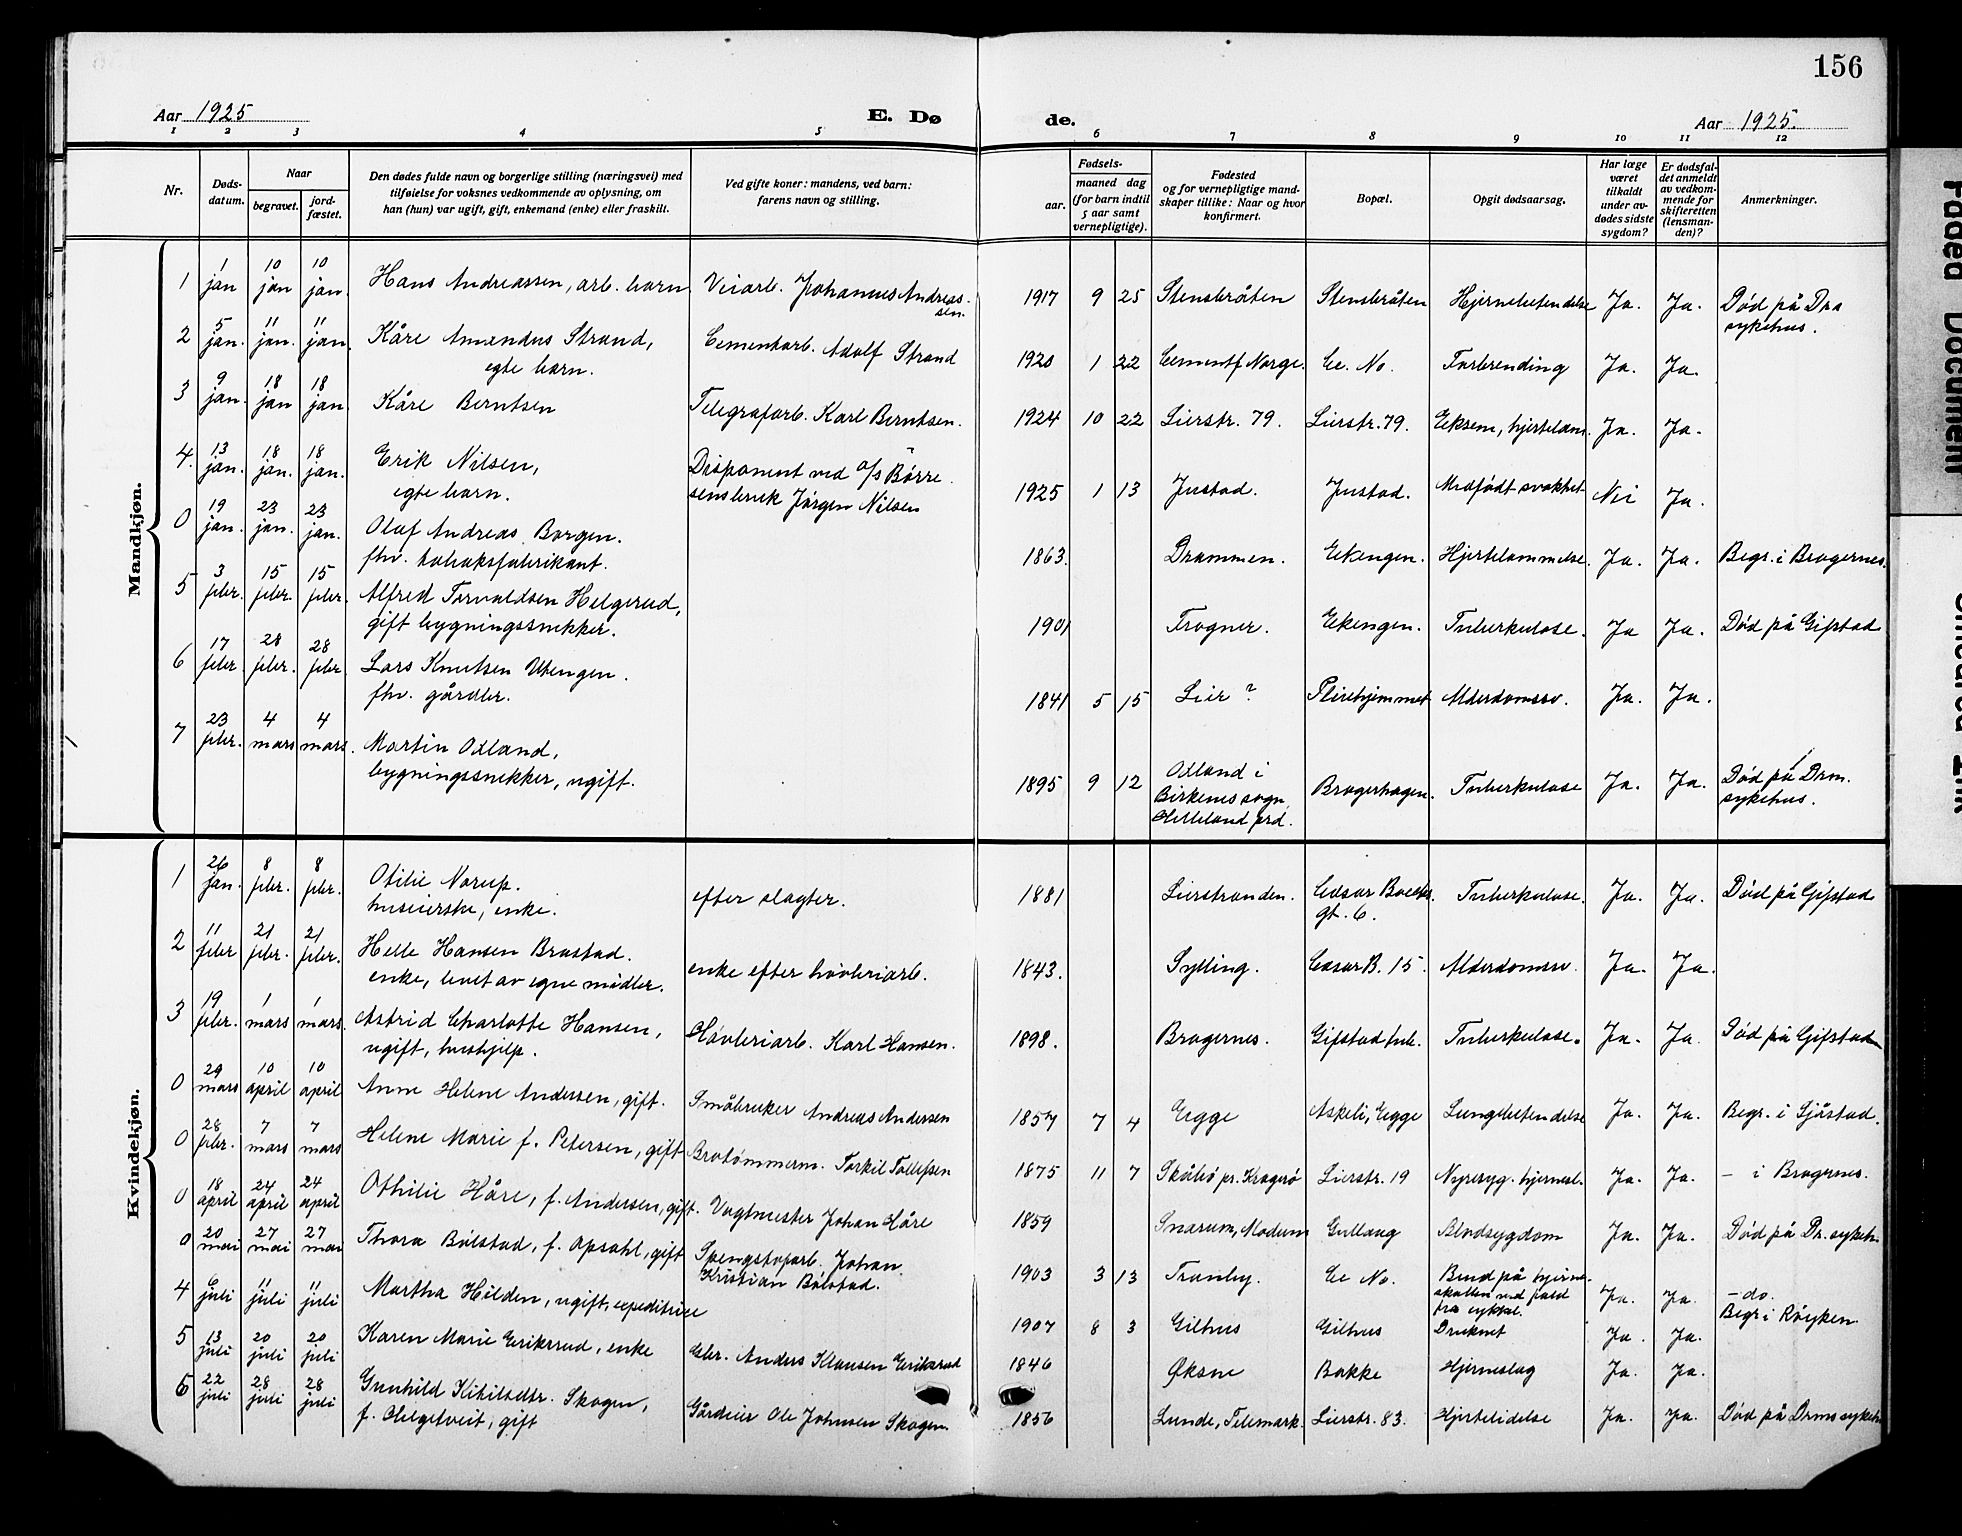 156
Aar 1925 E. Dø de. Aar 1925.
1 2 3 4 5 6 7 8 9 10 11 12
Nr. Døds-datum. Naar begravet. jord-fæstet. Den dødes fulde navn og borgerlige stilling (næringsvei) med tilføielse for voksnes vedkommende av oplysning, om han (hun) var ugift, gift, enkemand (enke) eller fraskilt. Ved gifte koner: mandens, ved barn: farens navn og stilling. Fødsels- aar. maaned dag (for barn indtil 5 aar samt vernepligtige). Fødested og for vernepligtige mand-skaper tillike: Naar og hvor konfirmert. Bopæl. Opgit dødsaarsag. Har læge været tilkaldt under av-dødes sidste sygdom? Er dødsfal-det anmeldt av vedkom-mende for skifteretten (lensman-den)? Anmerkninger.
Mandkjøn.
1 1 jan 10 jan 10 jan. Hans Andreassen, arb. barn Veiarb. Johannes Andreas-sen. 1917 9 25 Stensbråten Stensbråten Hjernebetendelse Ja. Ja. Død på Dra sykehus.
2 5 jan. 11 jan. 11 jan. Kåre Amendus Strand, egte barn. Cementarb. Adolf Strand 1920 1 22 Cementf Norge. Ce. No. Forbrending Ja. Ja.
3 9 jan. 18 jan 18 jan. Kåre Berntsen Telegrafarb. Karl Berntsen. 1924 10 22 Lierstr. 79. Lierstr. 79. Eksem, hjertelam. Ja. Ja.
4. 13 jan. 18 jan. 18 jan. Erik Nilsen, egte barn. Disponent ved a/s Børre-sensbruk Jørgen Nilsen 1925 1 13 Justad. Justad. Medfødt svakhet Nei Ja.
0 19 jan. 23 jan. 23 jan. Olaf Andreas Borgen. fhv. tobaksfabrikant. 1863. Drammen. Eekengen. Hjertelammelse. Ja. Ja. Begr. i Bragernes.
5 3 febr. 15 febr. 15 febr. Alfred Torvaldsen Helgerud, gift bygningssnekker. 1901 Frogner. Ekengen. Tuberkulose. Ja Ja. Død på Gifstad
6 17 febr. 28 febr. 28 febr. Lars Knutsen Utengen. fhv. gårdbr. 1841 5 15 Lier ? Pleiehjemmet Alderdomssv. Ja. Ja.
7 23 febr. 4 mars 4 mars. Martin Odland, bygningssnekker, ugift. 1895 9 12 Odland i Birkenes sogn, Hilleland prd. Bragerhagen. Tuberkulose Ja. Ja. Død på Drm. sykehus.
Kvindekjøn.
1 26 jan. 8 febr. 8 febr. Otilie Norup. huseierske, enke. efter slagter. 1881 Lierstranden. Cæsar Boecks. gt. 6. Tuberkulose. Ja. Ja. Død på Gifstad
2 11 febr 21 febr. 21 febr. Helle Hansen Brastad. enke, levet av egne midler. enke efter høvleriarb. 1843. Sylling. Cæsar B. 15. Alderdomssv. Ja. Ja.
3 19 febr. 1 mars 1 mars. Astrid Charlotte Hansen, ugift, hushjelp. Høvleriarb. Karl Hansen. 1898. Bragernes. Gifstad tub. Tuberkulose. Ja. Ja. Død på Gifstad
0 29 mars 10 april 10 april Anne Helene Andersen, gift. Småbruker Andreas Andersen 1857 7 4 Egge Askeli, Egge Lungebetendelse Ja. Ja. Begr. i Sjåstad.
0 28 febr. 7 mars 7 mars Helene Marie f. Petersen, gift Brotømmerm. Torkil Tollefsen 1875 11 7 Skåtø pr. Kragerø Lierstr. 19 Nyresyg. hjernesl. Ja. Ja. – i Bragernes.
0 18 april 24 april 24 april Othilie Håre, f. Andersen, gift. Vagtmester Johan Håre 1859 Snarum, Modum Gullaug Blodsygdom Ja. Ja. Død på Dr. sykeh.
0 20 mai 27 mai 27 mai Thora Bølstad, f. Opsahl, gift Sprengstofarb. Johan Kristian Bølstad. 1903 3 13 Tranby. Ce No. Brud på hjerne-skallen ved fald fra sykkel. Ja. Ja. – do. Begr. i Røyken.
4 6 juli 11 juli 11 juli Martha Hilden, ugift, expeditrice 1907 8 3 Gilhus Gilhus Druknet Ja. Ja.
5 13 juli 20 juli 20 juli Karen Marie Eriksrud, enke Gbr. Anders Klausen Eriksrud 1846 Øksne Bakke Hjerneslag Ja. Ja.
6 22 juli 28 juli 28 juli Gunhild Kikilsdtr. Skogen, f. Helgetveit, gift Gårdeier Ole Johnsen Skogen 1856 Lunde, Telemark. Lierstr. 83. Hjertelidelse Ja. Ja. Død på Drms sykeh.
Faded Document